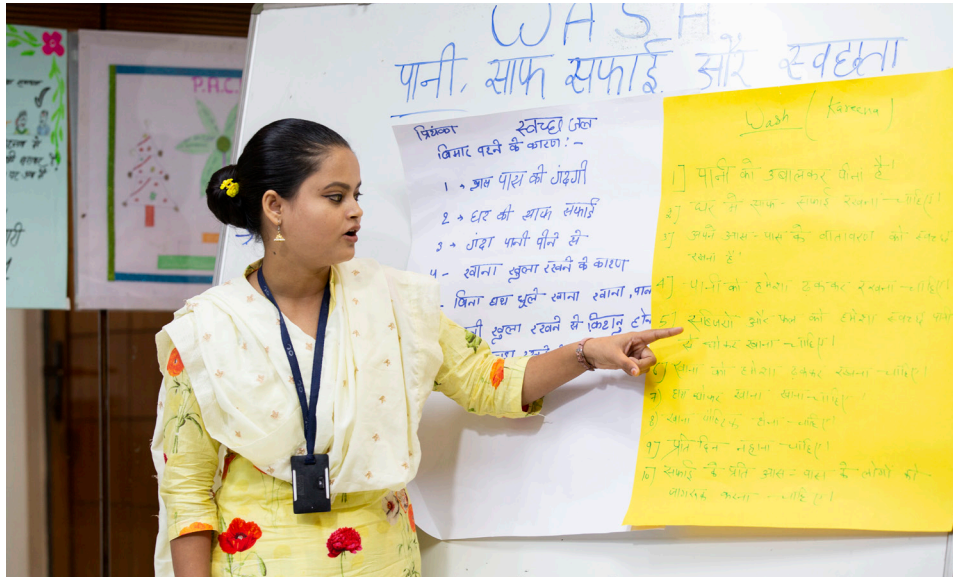 WASH
पानी, साफ सफाई और स्वछता
P.H.C.
प्रियंका स्वच्छ जल
बिमार परने के कारण :-
1 → आस पास की गंदगी
2 → घर की साफ सफाई
3 → गंदा पानी पीने से
4 - खाना खुला रखने के कारण
- बिना हाथ धुले खाना
खुला रखने से किटानु
Wash (Kareena)
1] पानी को उबालकर पीना है
2] घर में साफ-सफाई रखना चाहिए।
3] अपने आस-पास के वातावरण को स्वच्छ
रखना है
4] पानी को हमेशा ढककर रखना चाहिए।
5] सब्जियों और फल को हमेशा स्वच्छ
से धोकर खाना चाहिए।
6] खाना को हमेशा ढककर रखना चाहिए।
7] हाथ धोकर खाना खाना चाहिए।
8] खाना पौष्टिक होना चाहिए।
9] प्रति दिन नहाना चाहिए।
10] सफाई के प्रति आस-पास के लोगों को
जागरूक करना चाहिए।